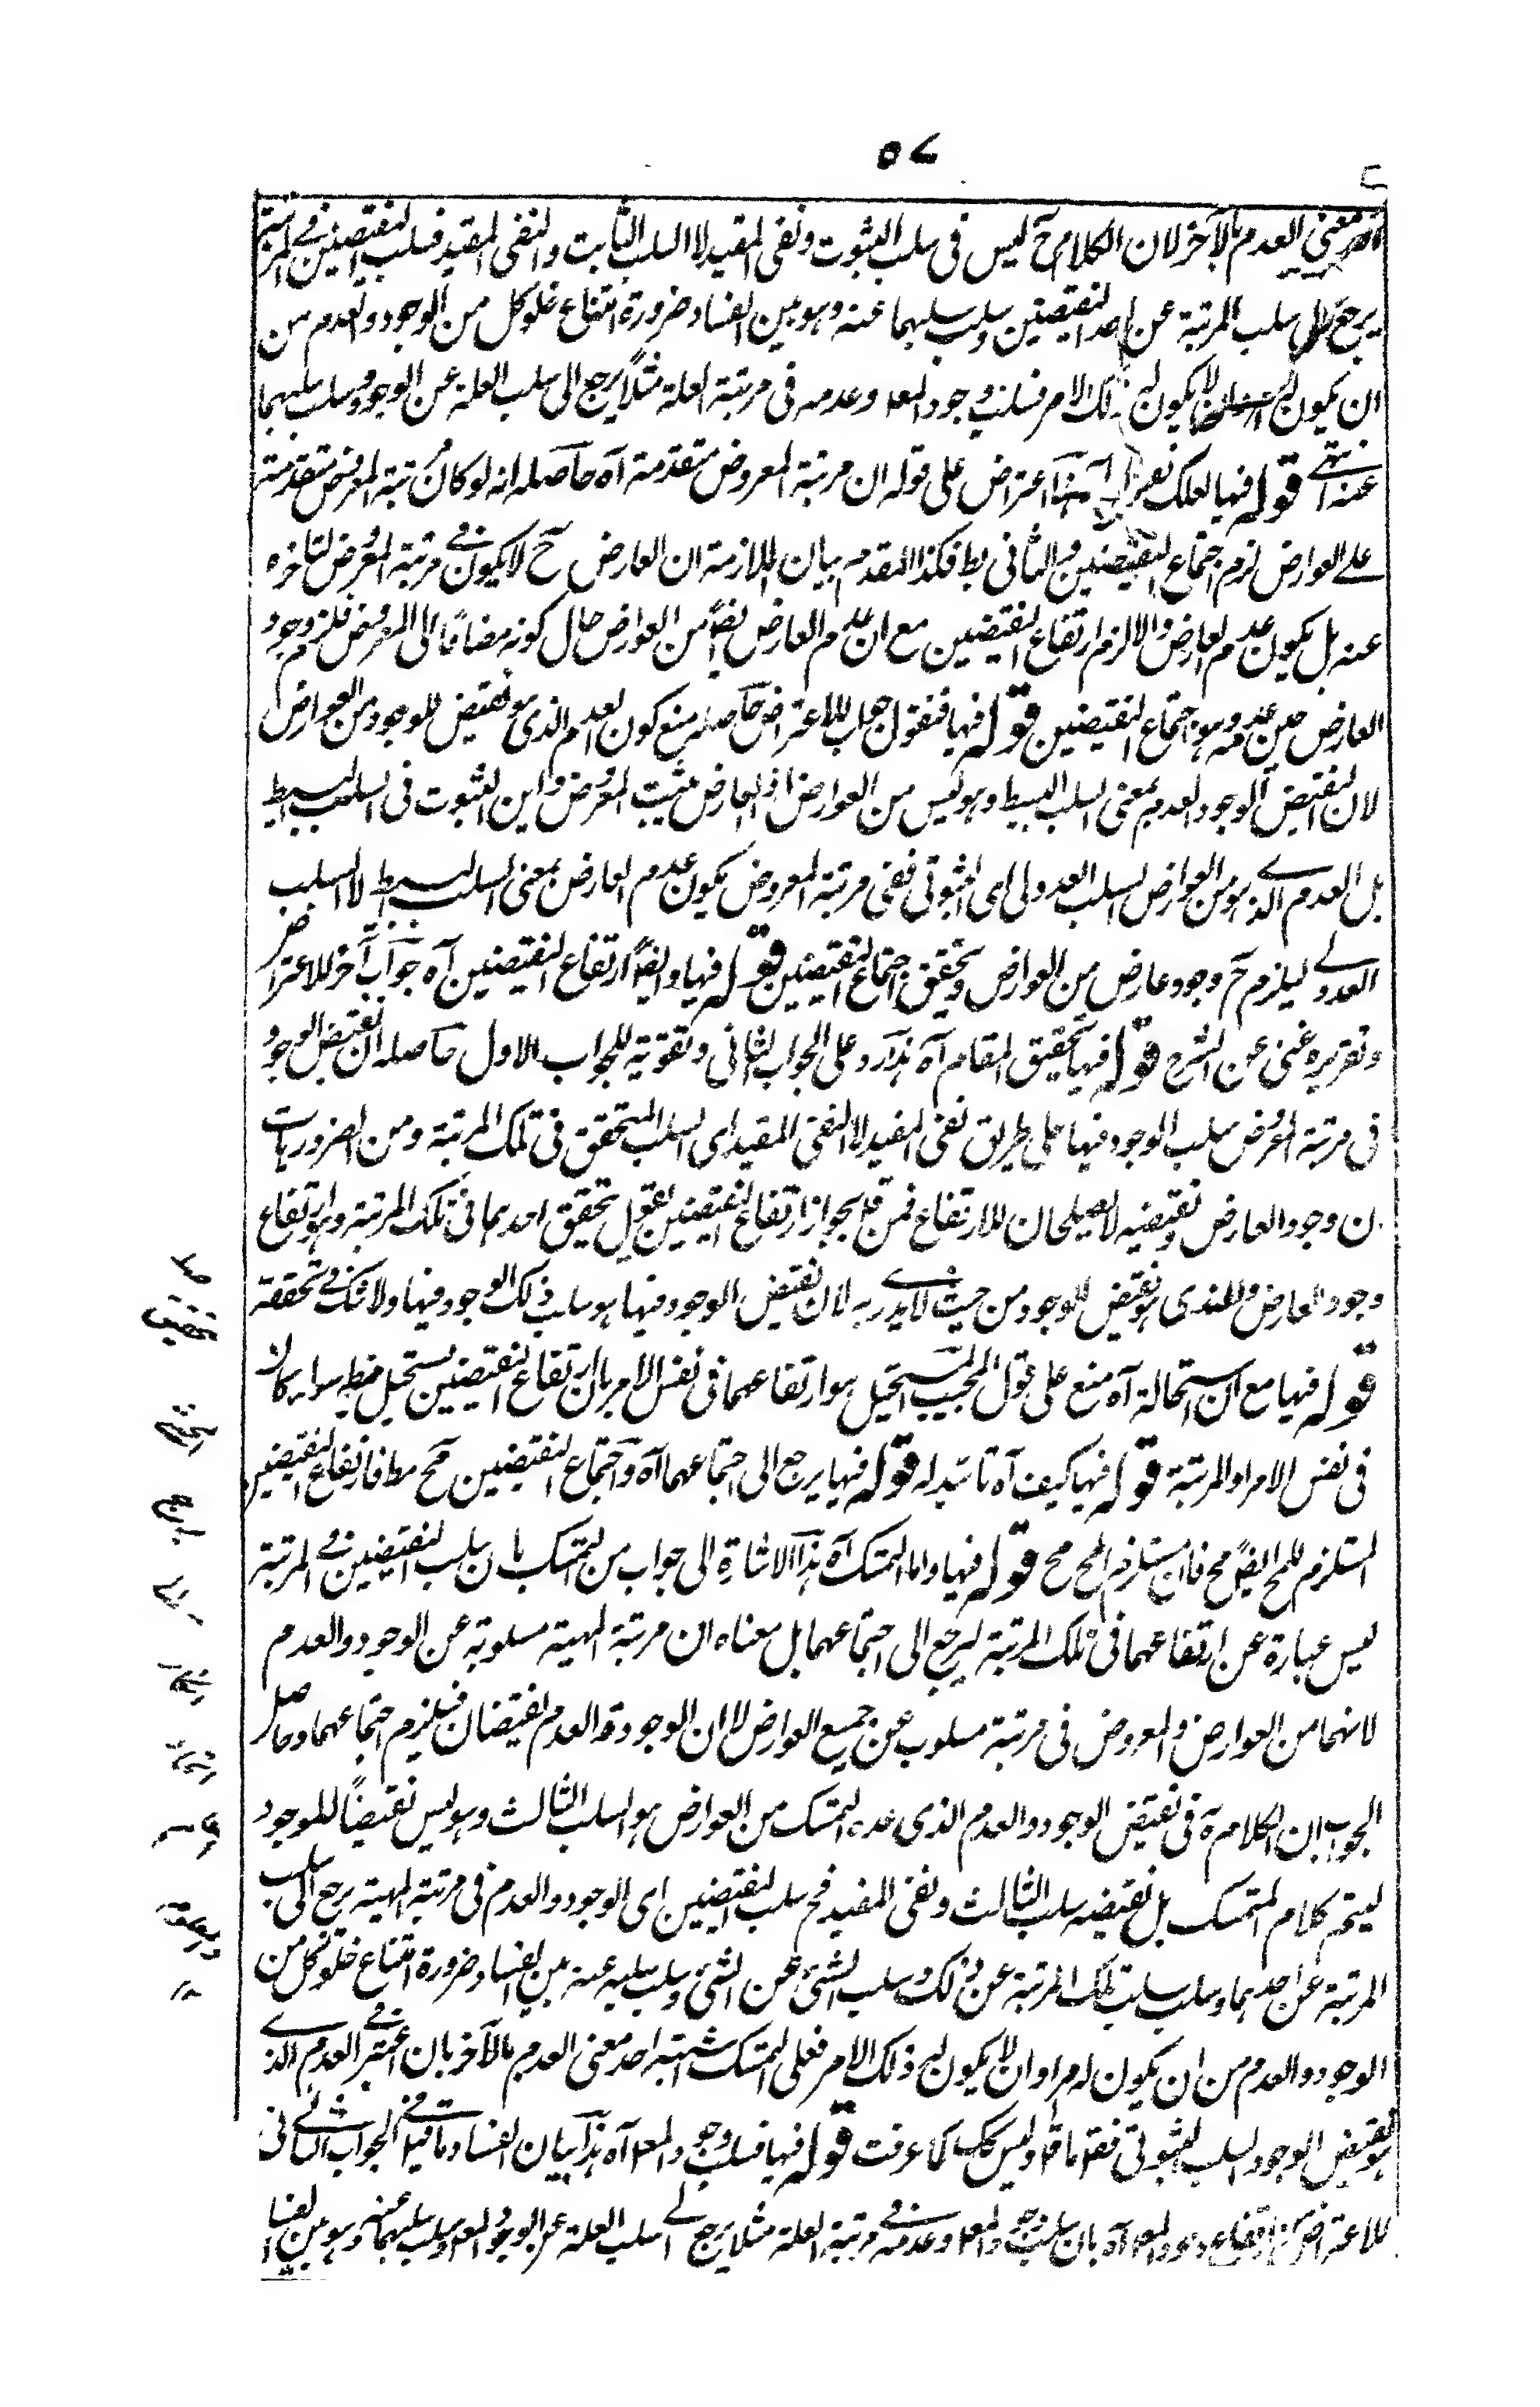 ٥٧
معنى العدم بالآخر لان الكلام ح ليس فى سلب الثبوت ونفى المقيد لا السلب الثابت والنفى المقيد فسلب النقيضين فے المرتبة
يرجع الى سلب المرتبة عن احد النقيضين وسلب سلبهما عنه وهو بين الفساد ضرورة امتناع خلو كل من الوجود والعدم من
ان يكون لا يكون له ذلك الامر فسلب وجود المعلا وعدمه فى مرتبة العلة مثلاً يرجع الى سلب العلة عن الوجود وسلب سلبهما
عنه انتهے قوله فيها لعلك هذا اعتراض على قوله ان مرتبة المعروض متقدمة آه حاصله انه لو كان مرتبة المعروض متقدمة
علے العوارض لزم اجتماع النقيضين والثانى بط فكذا المقدم بيان الملازمة ان العارض ح لا يكون فے مرتبة المعروض لتاخره
عنه بل يكون عدم العارض والا لزم ارتفاع النقيضين مع ان عدم العارض ايضاً من العوارض حال كونه مضافاً الى المعروض فلزم وجود
العارض حين عدمه وهو اجتماع النقيضين قوله فيها فنقول جواب للاعتراض حاصله منع كون العدم الذى هو نقيض للوجود من العوارض
لان النقيض الوجود العدم بمعنى السلب البسيط وهو ليس من العوارض اذ العارض مثبت المعروض واين الثبوت فى السلب البسيط
بل العدم الذے هو من العوارض السلب العدولى اى الثبوتى ففى مرتبة المعروض يكون عدم العارض بمعنى السلب البسيط لا السلب
العدولے ليلزم ح وجود عارض من العوارض وتحقيق اجتماع النقيضين قوله فيها وايضاً ارتفاع النقيضين آه جواب آخر للاعتراض
وتقريره غنى عن الشرح قوله فيها تحقيق المقام آه هذا رد على الجواب الثانى وتقوية للجواب الاول حاصله ان نقيض الوجود
فى مرتبة المعروض سلب الوجود فيها على طريق نفى المقيد لا النفى المقيد اى السلب المتحقق فى تلك المرتبة ومن الضروريات
ان وجود العارض ونقيضه لا يصلحان للارتفاع فمن قال بجواز ارتفاع النقيضين يقول تحقيق احدهما فى تلك المرتبة وهو ارتفاع
وجود العارض والذى هو نقيض للوجود من حيث لا يدرے به لان نقيض الوجود فيها هو سلب ذلك الوجود فيها ولا شك فے تحققه
قوله فيها مع ان استحالة آه منع على قول المجيب المستحيل هو ارتفاعهما فى نفس الامر بان ارتفاع النقيضين مستحيل مط سواء كان
فى نفس الامر او المرتبة قوله فيها كيف آه تائيد له قوله فيها يرجع الى اجتماعهما آه واجتماع النقيضين مح مط فارتفاع النقيضين
المستلزم للمح ايضاً مح فان مستلزم المح مح قوله فيها واما التمسك آه هذا اشارة الى جواب من تمسك بان سلب النقيضين فے المرتبة
ليس عبارة عن ارتفاعهما فى تلك المرتبة ليرجع الى اجتماعهما بل معناه ان مرتبة المهية مسلوبة عن الوجود والعدم
لانهما من العوارض والمعروض فى مرتبة مسلوب عن جميع العوارض لا ان الوجود والعدم نقيضان فيلزم اجتماعهما وحاصل
الجواب ان الكلام ههنا فى نقيض الوجود والعدم الذى عده المتمسك من العوارض هو السلب الثالث وهو ليس نقيضاً للوجود
ليتم كلام المتمسك بل نقيضه سلب الثالث ونفى المقيد فح سلب النقيضين اى الوجود والعدم فى مرتبة المهية يرجع الى سلب
المرتبة عن احدهما وسلب سلب تلك المرتبة عن ذلك وسلب الشئ عن الشئ وسلب سلبه عنه بين الفساد ضرورة امتناع خلو كل من
الوجود والعدم من ان يكون له امر او ان لا يكون له ذلك الامر فعلى المتمسك اشتبه احد معنى العدم بالآخر بان اعتبر فے العدم الذے
هو نقيض الوجود السلب الثبوتى فقال ما قال وليس كك كما عرفت قوله فيها فسلب وجود المعلا آه هذا بيان الفساد وما قيل فے الجواب الثانے
للاعتراض من ارتفاع وجود المعلا آه بان سلب وجود المعلا وعدمه فے مرتبة العلة مثلا يرجع الے سلب العلة عن الوجود المعلا وسلب سلبهما عنه وهو بين الفساد